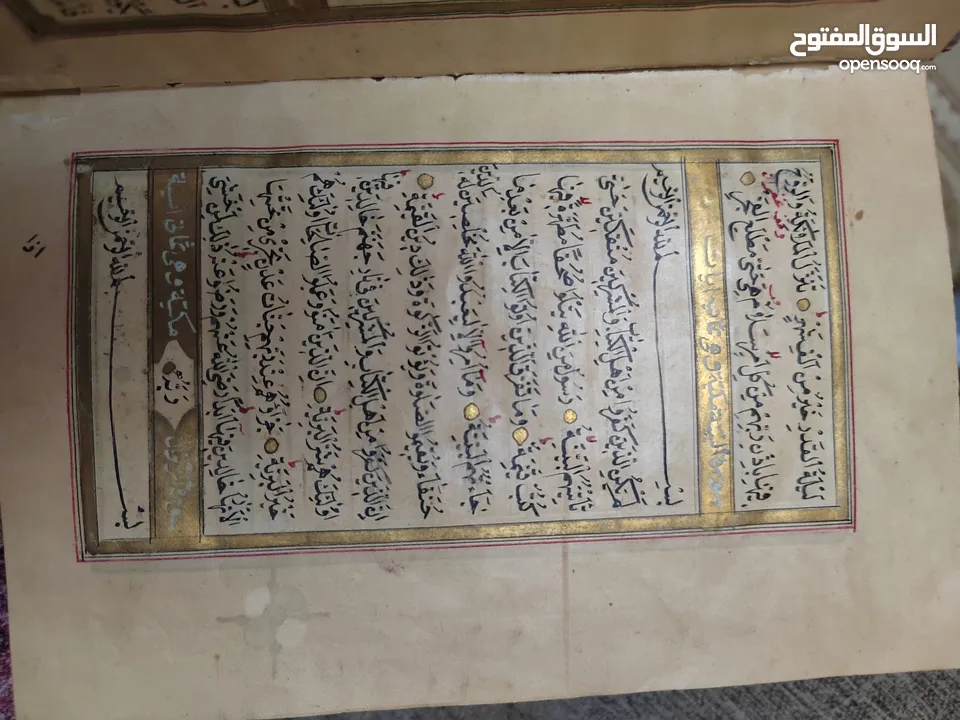 السوق المفتوح
opensooq.com
لَيْلَةُ الْقَدْرِ خَيْرٌ مِنْ اَلْفِ شَهْرٍ تَنَزَّلُ الْمَلٰٓئِكَةُ وَالرُّوحُ
فِيهَا بِاِذْنِ رَبِّهِمْ مِنْ كُلِّ اَمْرٍ سَلَامٌ هِيَ حَتّٰى مَطْلَعِ الْفَجْرِ
بِسْمِ اللّٰهِ الرَّحْمٰنِ الرَّحِيمِ
لَمْ يَكُنِ الَّذِينَ كَفَرُوا مِنْ اَهْلِ الْكِتَابِ وَالْمُشْرِكِينَ مُنْفَكِّينَ حَتّٰى
تَاْتِيَهُمُ الْبَيِّنَةُ رَسُولٌ مِنَ اللّٰهِ يَتْلُوا صُحُفًا مُطَهَّرَةً فِيهَا
كُتُبٌ قَيِّمَةٌ وَمَا تَفَرَّقَ الَّذِينَ اُوتُوا الْكِتَابَ اِلَّا مِنْ بَعْدِ مَا
جَاءَتْهُمُ الْبَيِّنَةُ وَمَا اُمِرُوا اِلَّا لِيَعْبُدُوا اللّٰهَ مُخْلِصِينَ لَهُ الدِّينَ
حُنَفَاءَ وَيُقِيمُوا الصَّلٰوةَ وَيُؤْتُوا الزَّكٰوةَ وَذٰلِكَ دِينُ الْقَيِّمَةِ
اِنَّ الَّذِينَ كَفَرُوا مِنْ اَهْلِ الْكِتَابِ وَالْمُشْرِكِينَ فِي نَارِ جَهَنَّمَ خَالِدِينَ فِيهَا
اُولٰٓئِكَ هُمْ شَرُّ الْبَرِيَّةِ اِنَّ الَّذِينَ اٰمَنُوا وَعَمِلُوا الصَّالِحَاتِ اُولٰٓئِكَ هُمْ
خَيْرُ الْبَرِيَّةِ جَزَاؤُهُمْ عِنْدَ رَبِّهِمْ جَنَّاتُ عَدْنٍ تَجْرِي مِنْ تَحْتِهَا
الْاَنْهَارُ خَالِدِينَ فِيهَا اَبَدًا رَضِيَ اللّٰهُ عَنْهُمْ وَرَضُوا عَنْهُ ذٰلِكَ لِمَنْ خَشِيَ
رَبَّهُ
مكية وهي ثمان اية
بِسْمِ اللّٰهِ الرَّحْمٰنِ الرَّحِيمِ